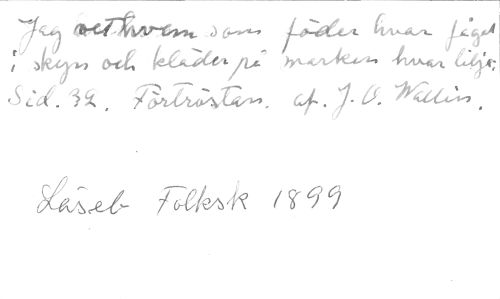 Jag vet hvem som föder hvar fågel
i skyn och kläder på marken hvar lilja.
Sid. 32. Förtröstan. af. J. O. Wallin.
Läseb Folksk 1899